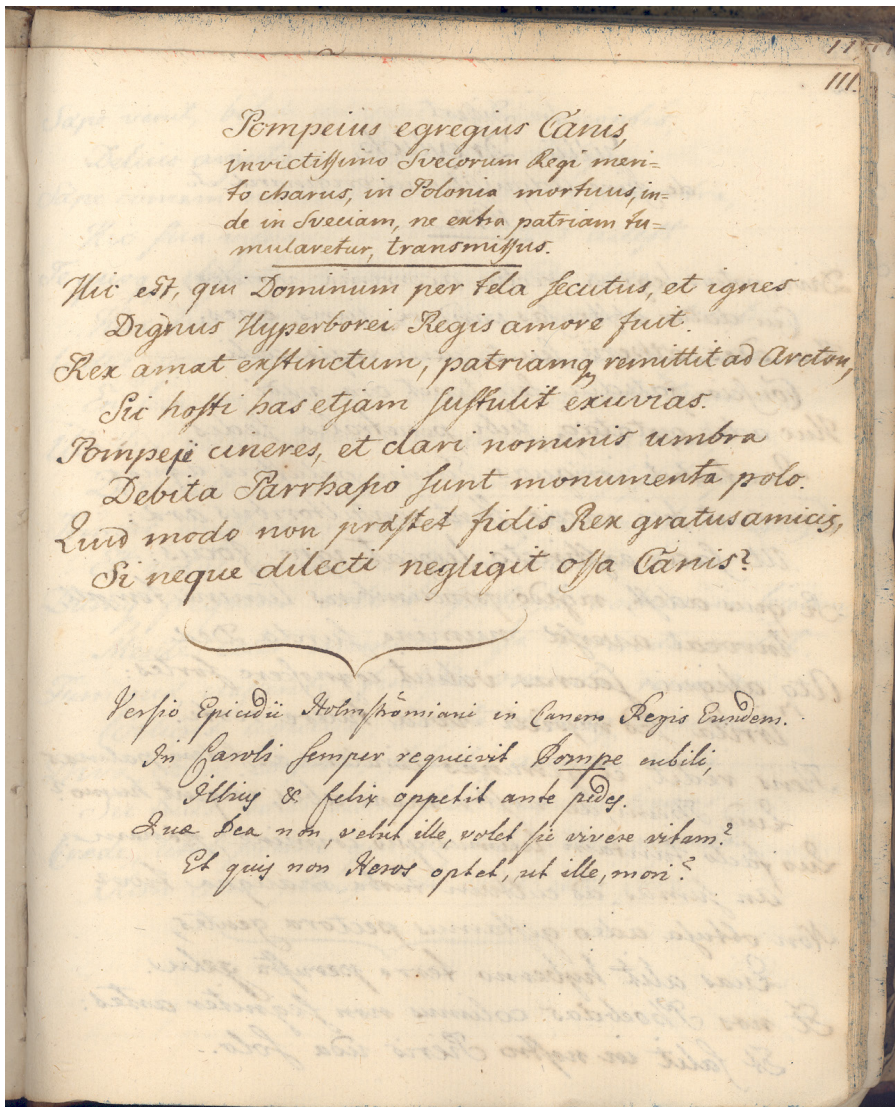 111.
Pompeius egregius Canis,
invictissimo Svecorum Regi meri=
to charus, in Polonia mortuus, in=
de in Sveciam, ne extra patriam tu=
mularetur, transmissus.
Hic est, qui Dominum per tela secutus, et ignes
Dignus Hyperborei Regis amore fuit.
Rex amat exstinctum, patriamq remittit ad Arcton,
Sic hosti has etjam sustulit exuvias.
Pompeji cineres, et clari nominis umbra
Debita Parrhasio sunt monumenta polo.
Quid modo non præstet fidis Rex gratus amicis,
Si neque dilecti negligit ossa Canis?
Versio Epicedii Holmströmiani in Canem Regis Eundem.
In Caroli semper requievit Pompe cubili,
Illius & felix oppetit ante pedes.
Quæ Dea non, velut ille, volet sic vivere vitam?
Et quis non Heros optet, ut ille, mori?